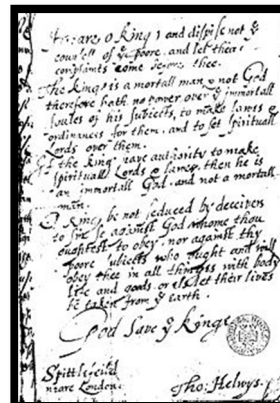 Heare o King, and dispise not yͤ
counsell of yͤ poore, and let their
complaints come before thee.
The King is a mortall man, & not God
therefore hath no power over yͤ immortall
soules of his subiects, to make lawes &
ordinances for them, and to set spirituall
Lords over them.
If the King have authority to make
spirituall Lords & lawes, then he is
an immortall God, and not a mortall
man.
O King, be not seduced by deceivers
to sin so against God whome thou
oughtest to obey, nor against thy
poore subiects who ought and will
obey thee in all thinges with body
life and goods, or els let their lives
be taken from yͤ earth.
God save yͤ Kinge
Spittlefeild
neare London.
Tho: Helwys.